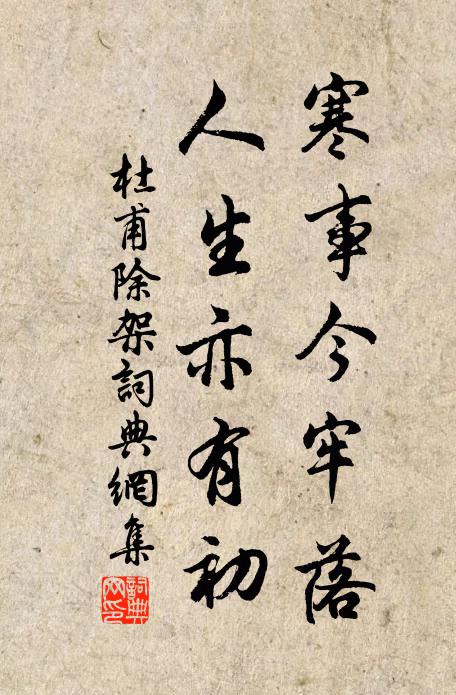 寒事今牢落
人生亦有初
杜甫除架詞典網集
詞典網印